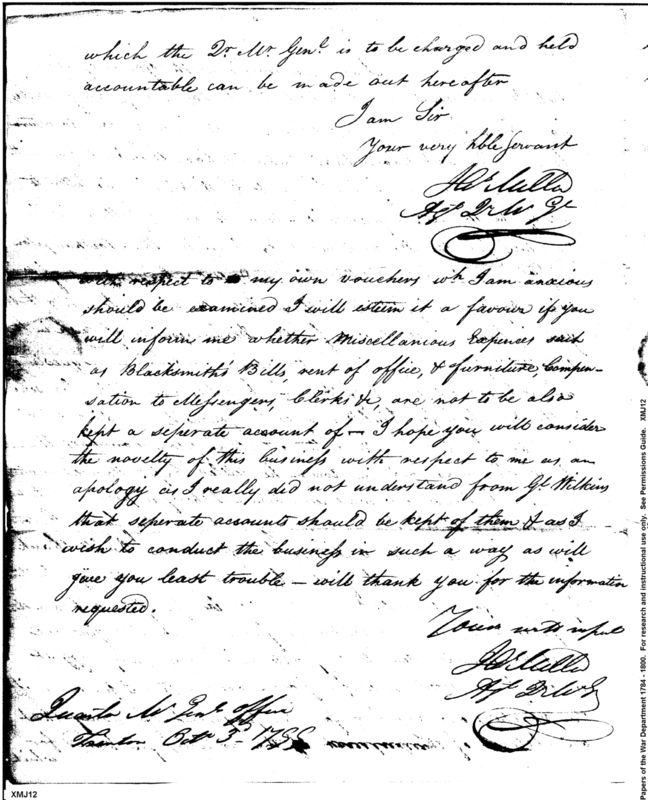 which the Qr. Mr. Genl. is to be charged and held
accountable can be made out hereafter
I am Sir
Your very hble Servant
Jn Miller
Agt Qr M Gl
with respect to my own vouchers wh. I am anxious
should be examined I will esteem it a favour if you
will inform me whether Miscellanious Expences such
as Blacksmith's Bills, rent of office, & furniture, Compen-
sation to Messengers, Clerks &c, are not to be also
kept a seperate account of — I hope you will consider
the novelty of this business with respect to me as an
apology as I really did not understand from Gl. Wilkins
that seperate accounts should be kept of them & as I
wish to conduct the business in such a way as will
give you least trouble — will thank you for the information
requested.
Yours with respect
Miller
Agt Qr M G
Quarter Mr Genls office
Trenton Octr 3d
XMJ12
Papers of the War Department 1784 - 1800. For research and instructional use only. See Permissions Guide. XMJ12